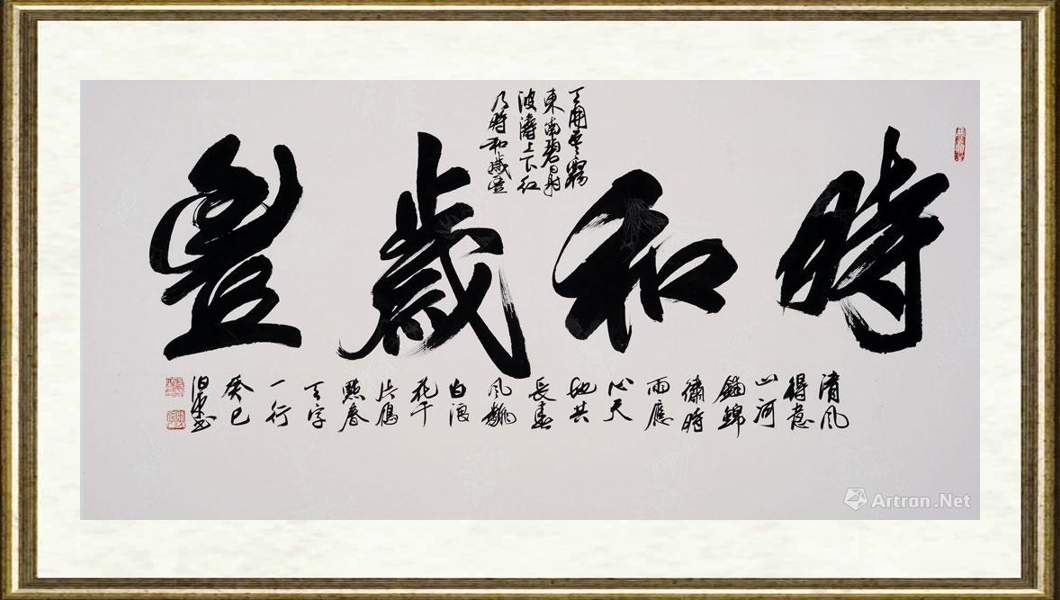 時和歲豐
天開雲霧
東南碧日射
波濤上下紅
乃時和歲豐
清風
得意
山河
鋪錦
繡時
雨應
心天
地共
長春
風翻
白浪
花千
片雁
點青
天字
一行
癸巳
Artron.Net